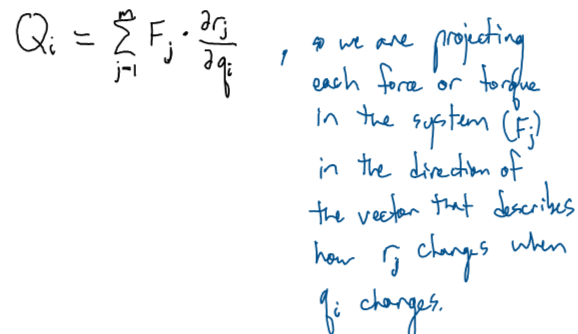 Qᵢ = Σ_{j=1}^{m} Fⱼ · ∂rⱼ/∂qᵢ , so we are projecting
each force or torque
in the system (Fⱼ)
in the direction of
the vector that describes
how rⱼ changes when
qᵢ changes.